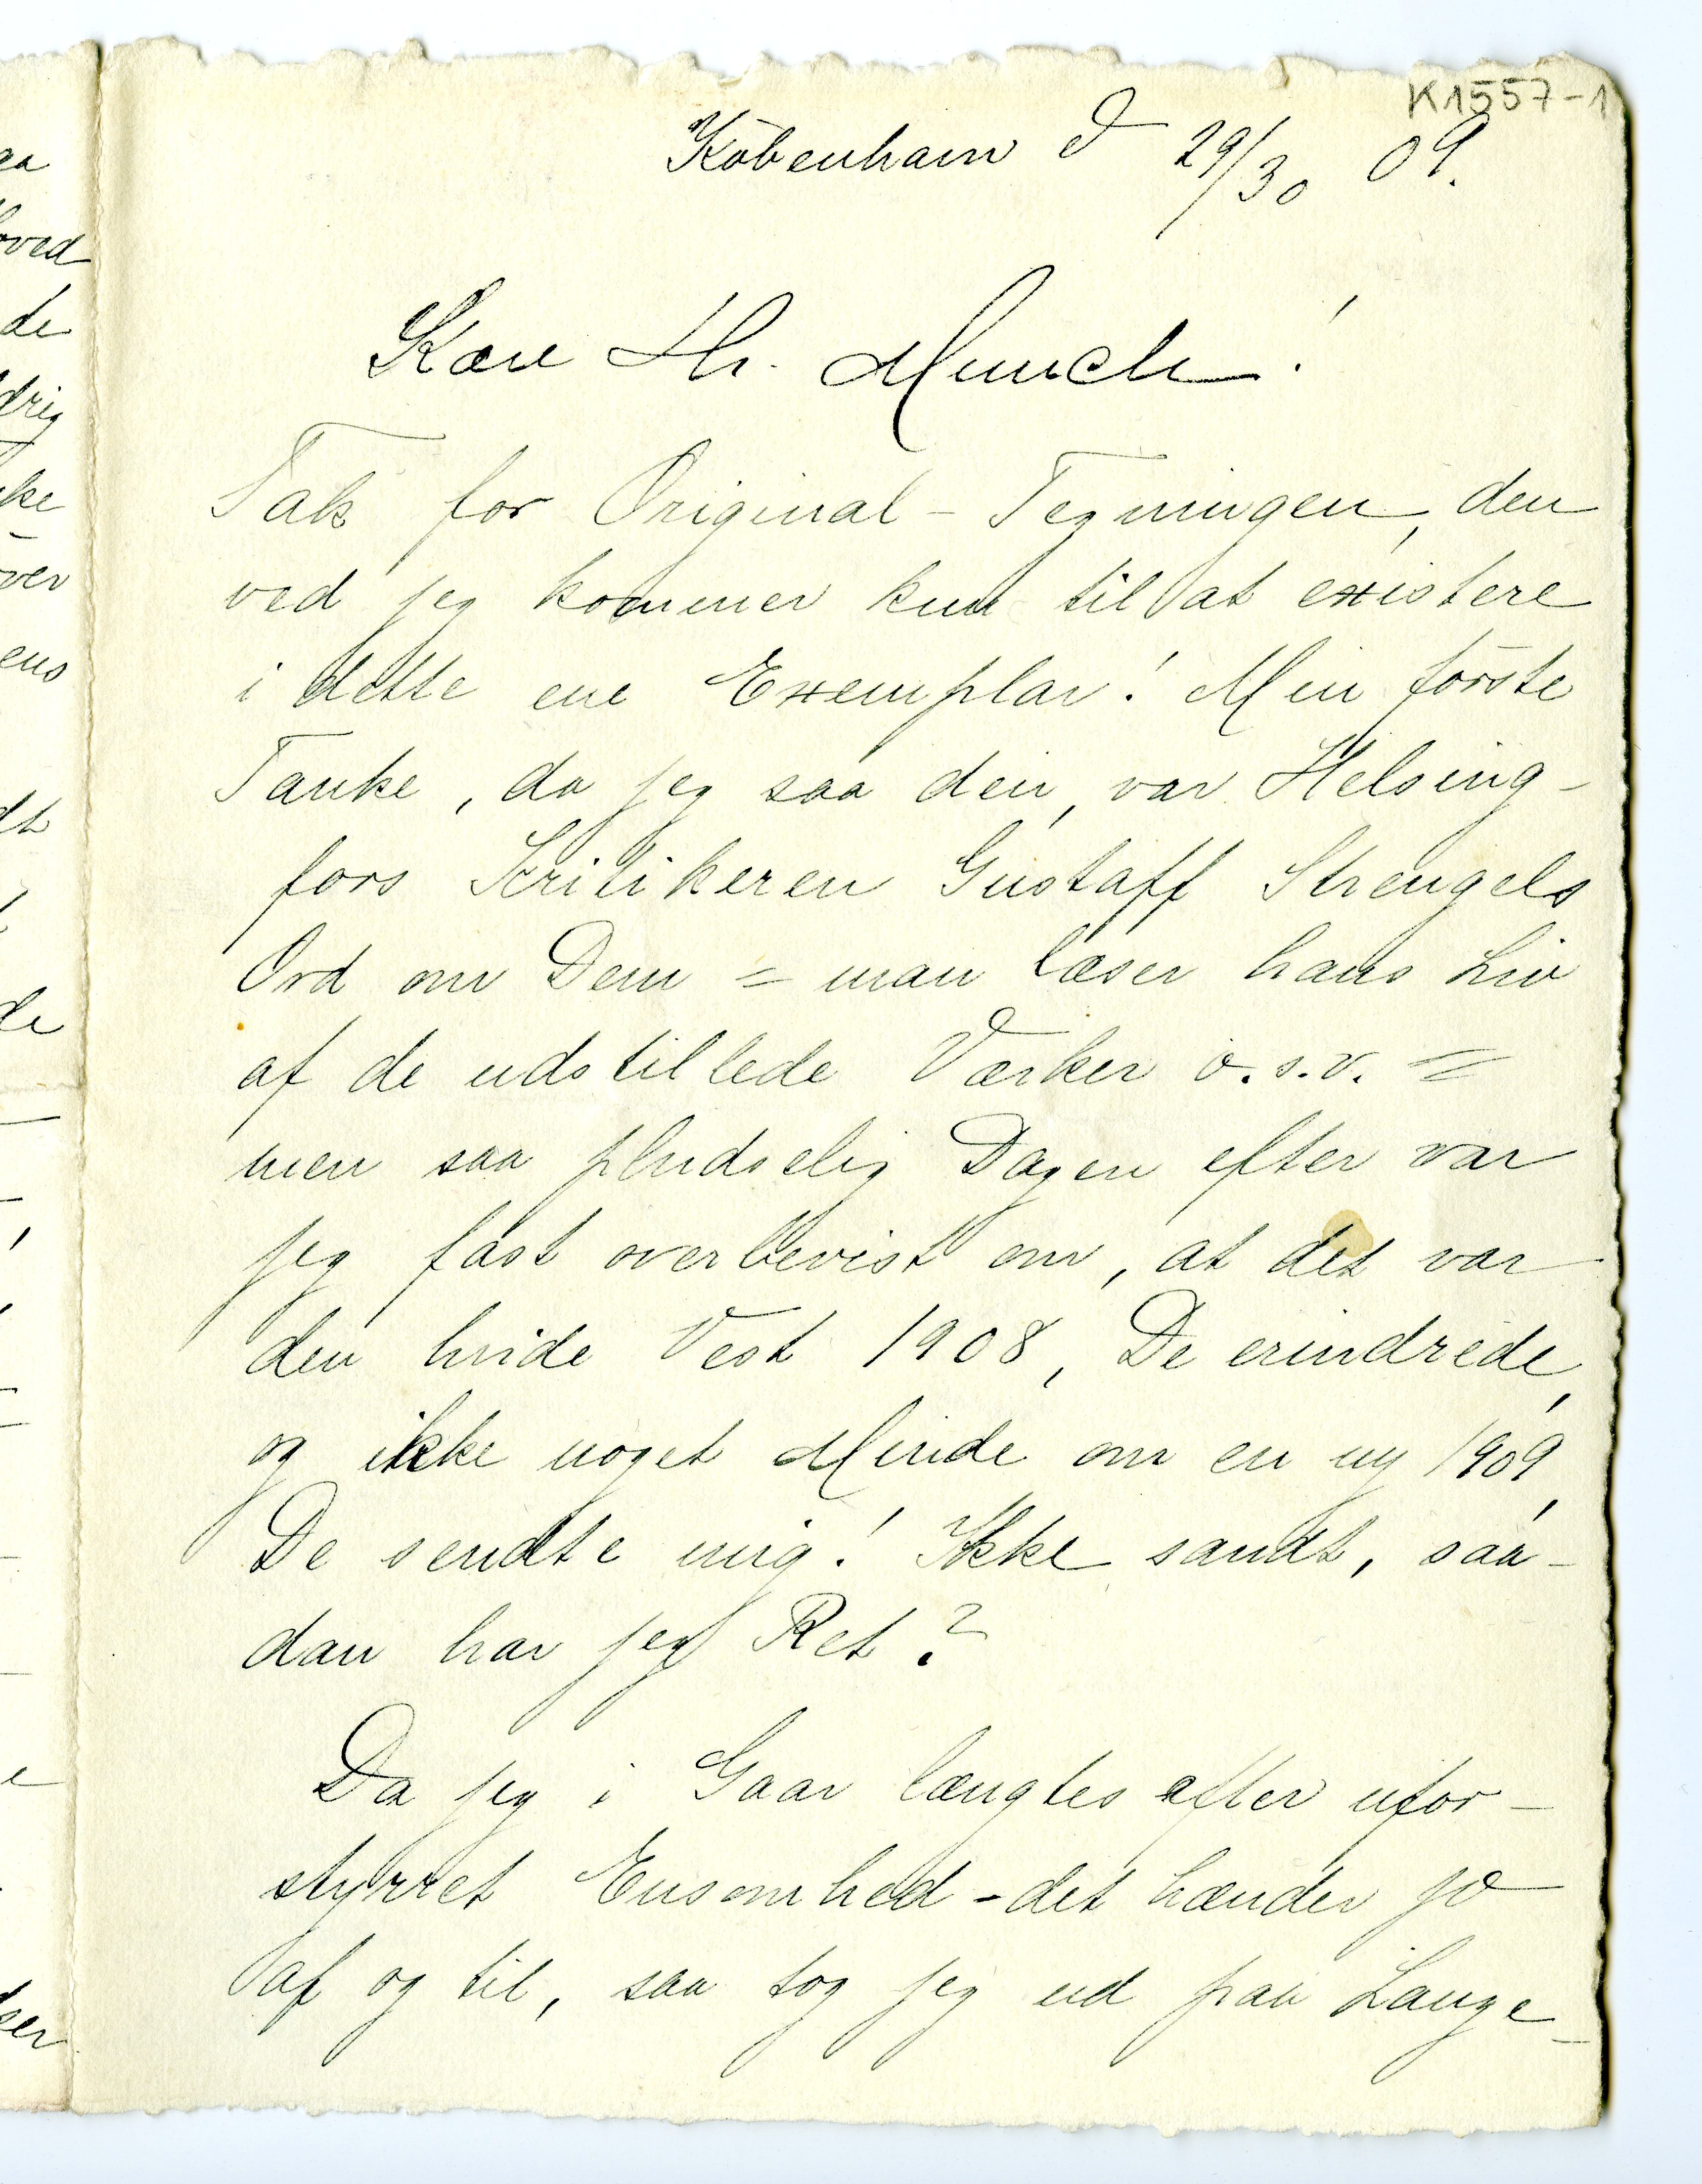 K1557-1
København d 29/30 09.
Kære Hr. Munch!
Tak for Original-Tegningen, den
ved jeg kommer kun til at existere
i dette ene Exemplar! Min første
Tanke, da jeg saa den, var Helsing-
fors Kritikeren Gustaff Strengels
Ord om Dem = man læser hans Liv
af de udstillede Værker o.s.v. =
men saa pludselig Dagen efter var
jeg fast overbevist om, at det var
den hvide Vest 1908, De erindrede,
og ikke noget Minde om en ny 1909,
De sendte mig! Ikke sandt, saa-
dan har jeg Ret?
Da jeg i Gaar længtes efter ufor-
styrret Ensomhed - det hænder jo
af og til, saa tog jeg ud paa Lange-
aa
oved
de
drig
ke
ver
ens
dt
de
e
ser